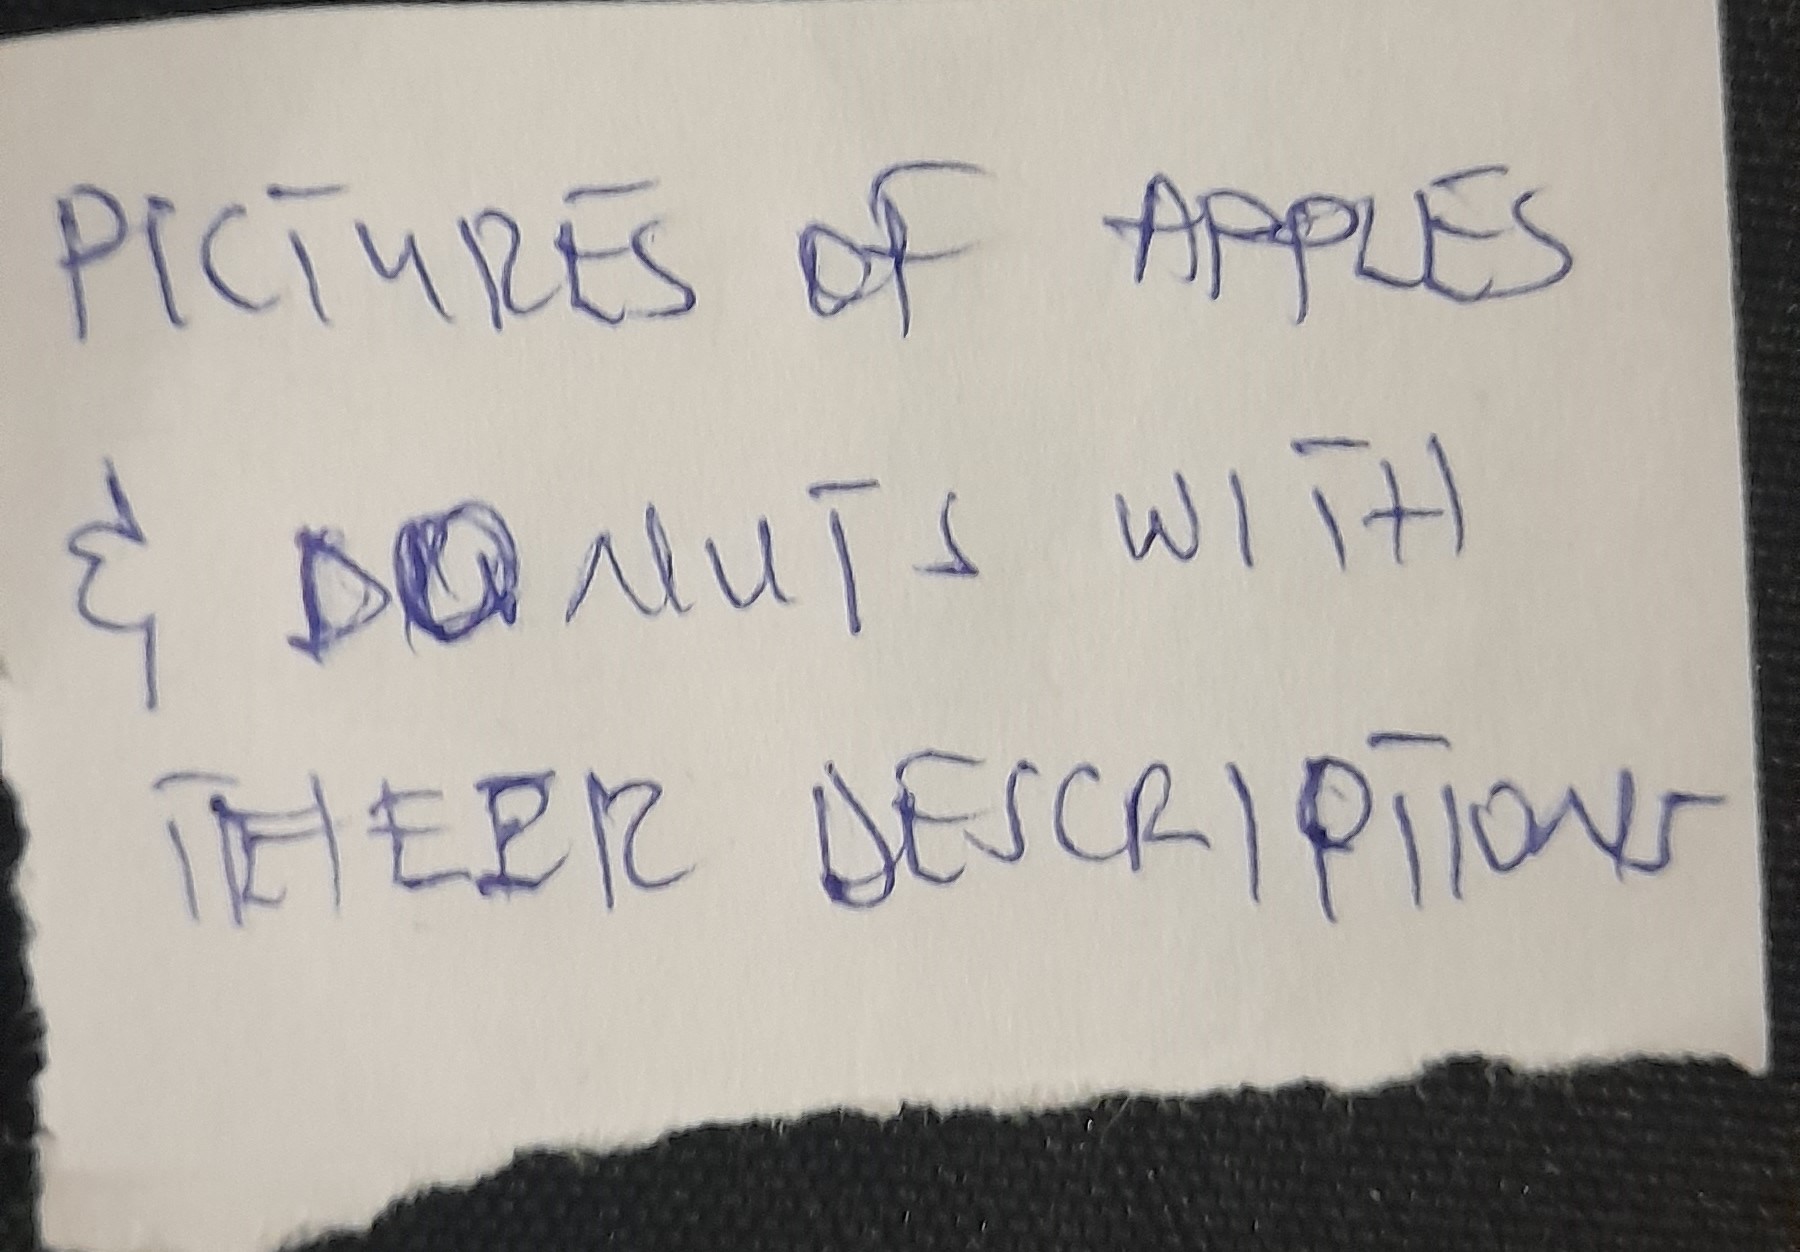 PICTURES OF APPLES
& DONUTS WITH
THEER DESCRIPTIONS